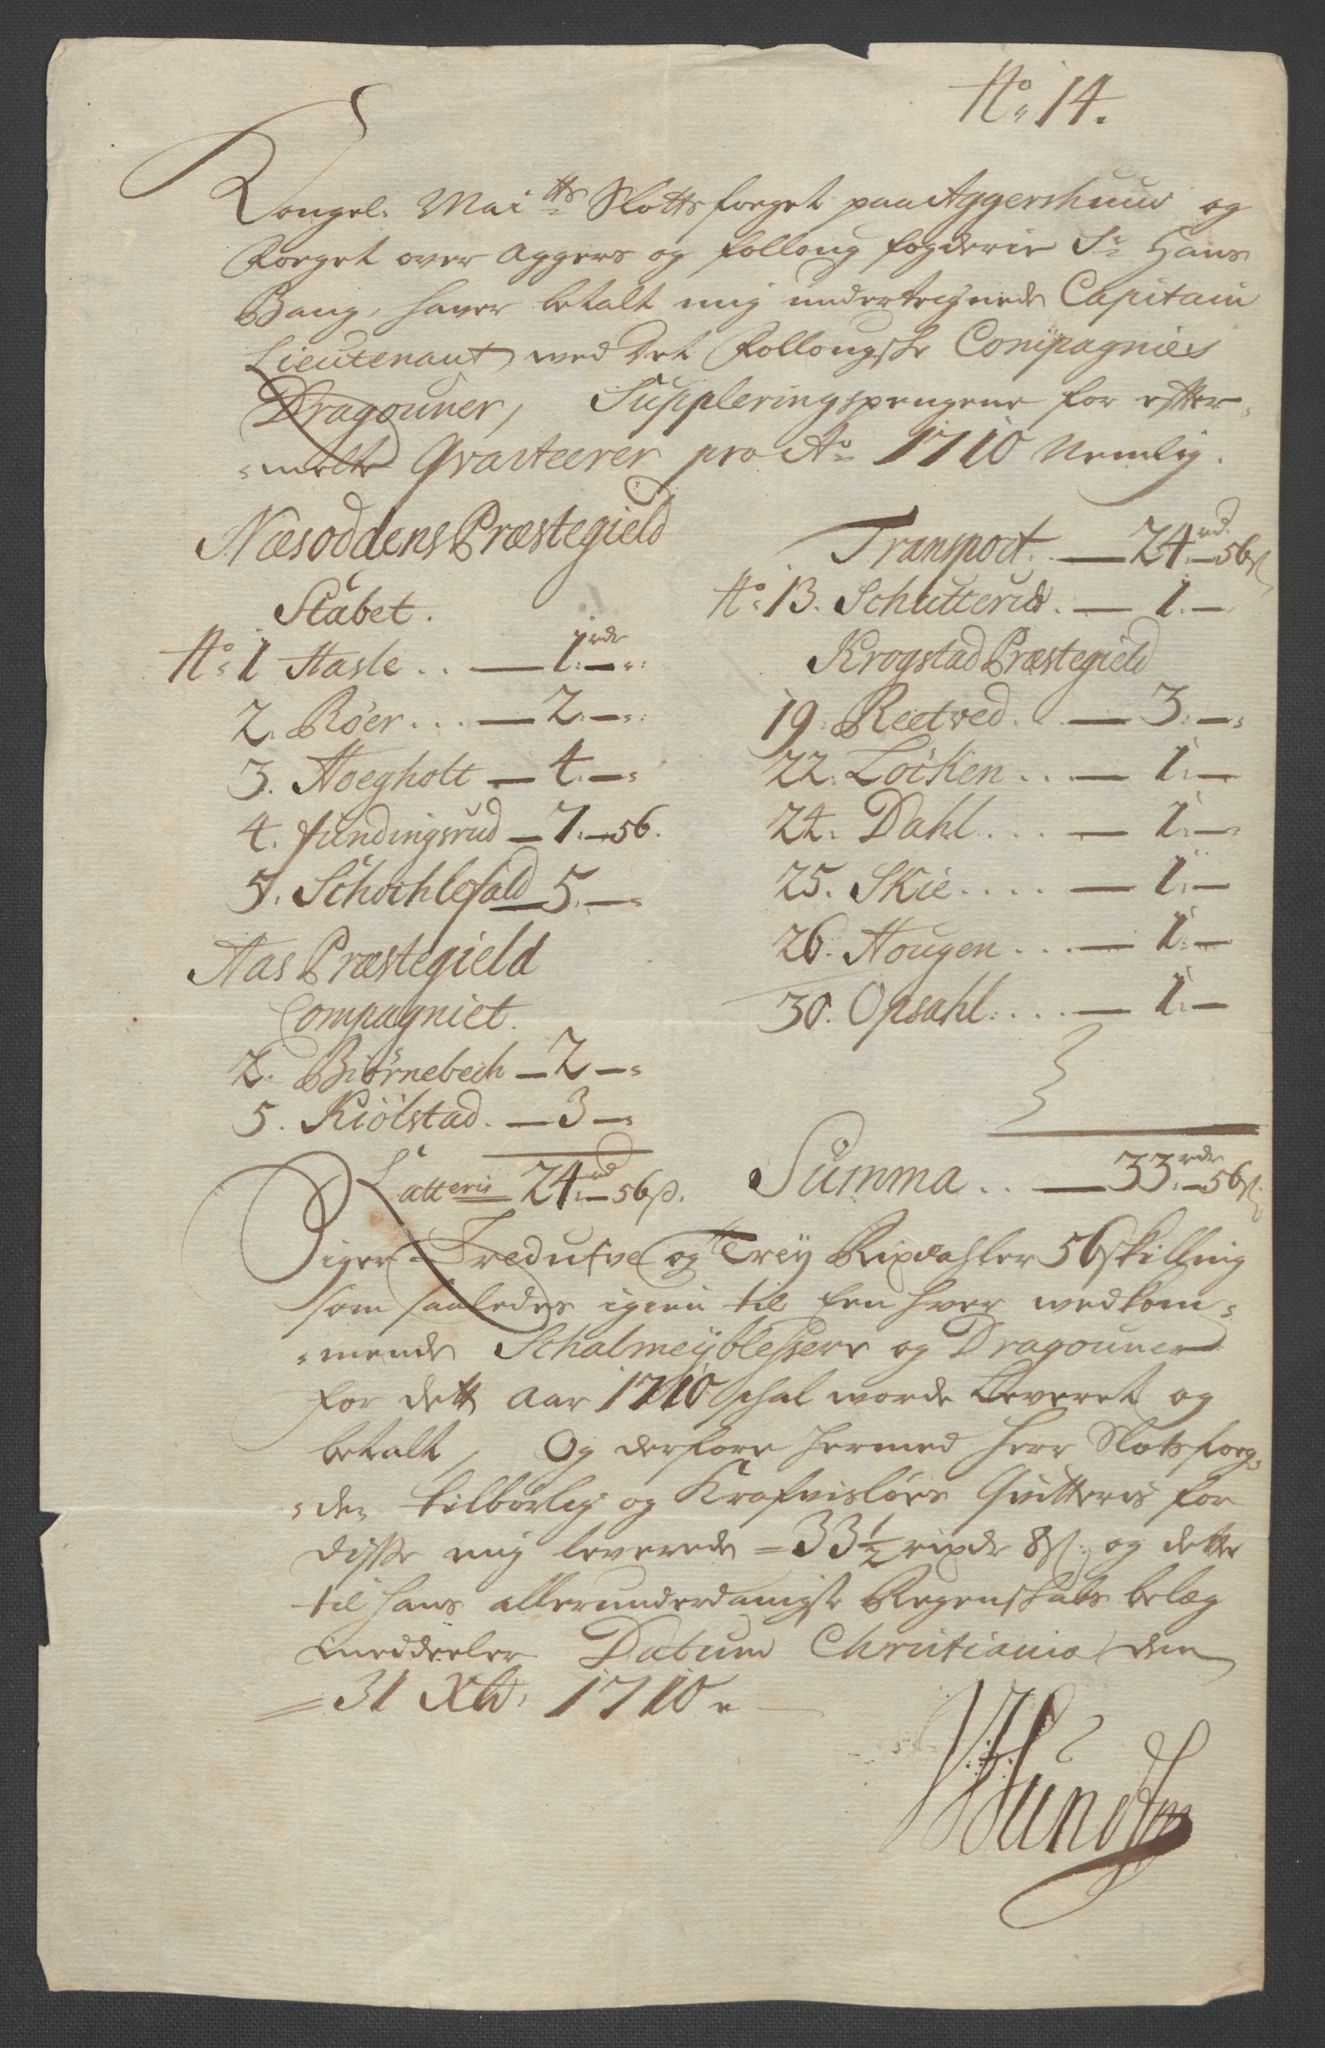 No 14.
Kongel: Maitts Slottsfoeget paa Aggershuus og
Foeget over Aggers og folloug fogderie Sr Hans
Bang, haver betalt mig undertegnede Capitain
Lieutenant wed Det Follougske Compagnies
Dragouner, Suppleringspengene for efter-
-melte Qvarteerer pro Ao 1710 Nemlig.
Næsoddens Præstegield
Stabet.
No 1 Hasle .. — 1 rdr —
2. Röer ... — 2 —
3. Hoegholt — 4 —
4. fundingsrud — 7 — 56.
5. Schochlefald — 5 —
Aas Præstegield
Compagniet.
2. Biörnebech — 2 —
5. Kiölstad. — 3 —
Latteris 24 rd — 56 ß.
Transport. — 24 rd — 56 ß
No 13. Schutterud. — 1 —
Krogstad Præstegield
19. Reetved. .. — 3 —
22. Löcken ... — 1 —
24. Dahl ... — 1 —
25. Skie .... — 1 —
26. Hougen ... — 1 —
30. Opsahl .... — 1 —
Summa .. — 33 rdr — 56 ß.
Siger Tredufve og Trey Rixdahler 56 skilling
som saaledes igien til Een hver wedkom-
-mende Schalmeyblessere og Dragouner
for dett Aar 1710 schal worde Leveret og
betalt, Og derfore hermed Herr Slotsfoeg-
-den tilbörlig og Krafvislöes Qvitteris for
disse mig leverede 33 1/2 rixdr 8 ß: og dette
til hans allerunderdanigste Regenskabs belæg
meddeeler Datum Christiania den
31 Xbr. 1710